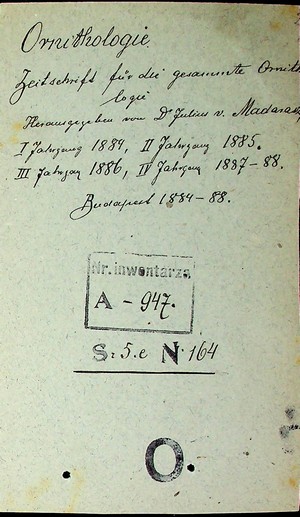 Ornithologie.
Zeitschrift für die gesammte Ornitho
logie
Herausgegeben von Dr Julius v. Madarász
I Jahrgang 1884, II Jahrgang 1885.
III Jahrgang 1886, IV Jahrgang 1887-88.
Budapest 1884-88.
Nr. inwentarza
A - 947.
Sz 5.e No 164
O.